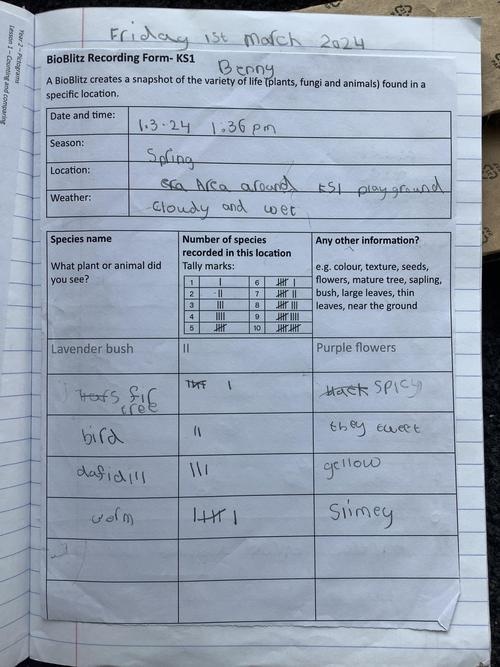 Year 2 – Pictograms
Lesson 1 – Counting and comparing
Friday 1st March 2024
BioBlitz Recording Form- KS1
Benny
A BioBlitz creates a snapshot of the variety of life (plants, fungi and animals) found in a
specific location.
Date and time: 1.3.24 1:36 pm
Season: Spring
Location: Area around KS1 playground
Weather: cloudy and wet
Species name
What plant or animal did
you see?
Number of species
recorded in this location
Tally marks:
1 | 6 𝍸 |
2 || 7 𝍸 ||
3 ||| 8 𝍸 |||
4 |||| 9 𝍸 ||||
5 𝍸 10 𝍸 𝍸
Any other information?
e.g. colour, texture, seeds,
flowers, mature tree, sapling,
bush, large leaves, thin
leaves, near the ground
Lavender bush || Purple flowers
fir 𝍸 | spicy
tree
bird || they tweet
dafidill ||| yellow
worm 𝍸 | Slimey